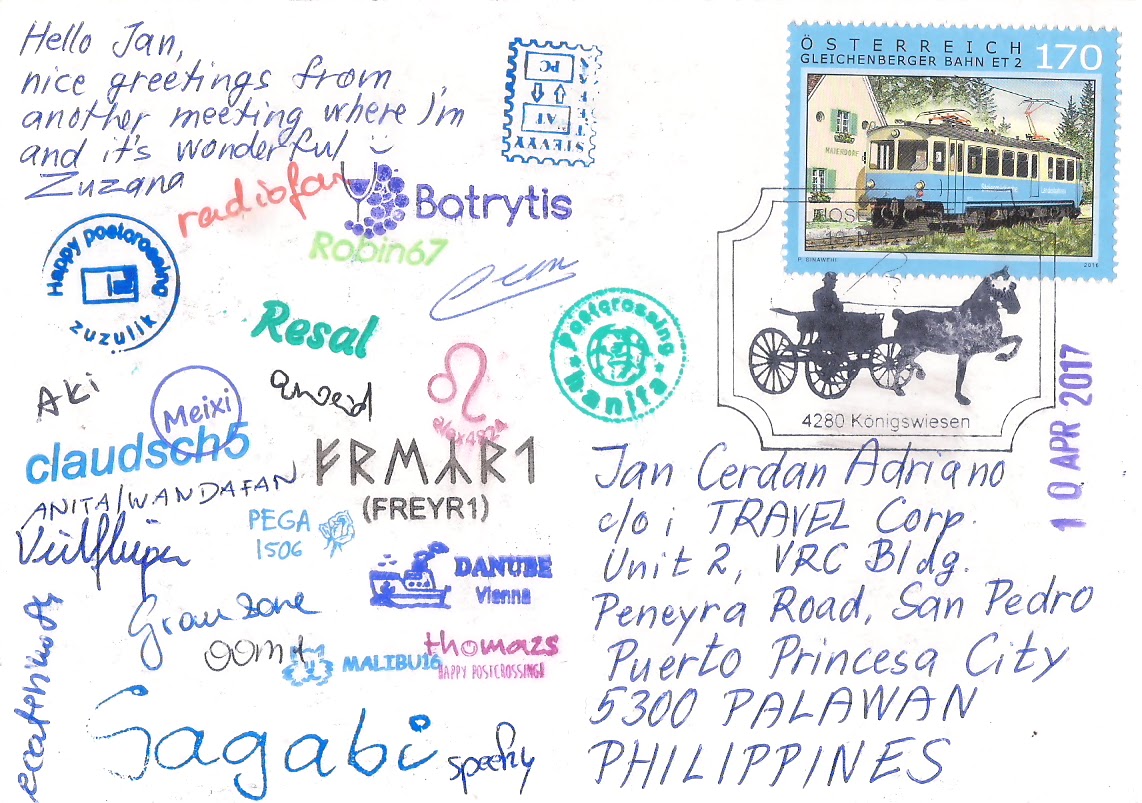 Hello Jan,
nice greetings from
another meeting where I'm
and it's wonderful
Zuzana
ÖSTERREICH 170
GLEICHENBERGER BAHN ET 2
MAIERDORF
2016
radiofan
Batrytis
Robin67
Happy postcrossing
zuzulik
Resal
Postcrossing
hanita
Aki
Meixi
claudsch5
FREYR1
(FREYR1)
ANITA/WANDAFAN
PEGA
1506
DANUBE
Vienna
Grauzone
thomazs
HAPPY POSTCROSSING!
MALIBU16
Sagabi
speeky
4280 Königswiesen
10 APR 2017
Jan Cerdan Adriano
c/o i TRAVEL Corp.
Unit 2, VRC Bldg.
Peneyra Road, San Pedro
Puerto Princesa City
5300 PALAWAN
PHILIPPINES